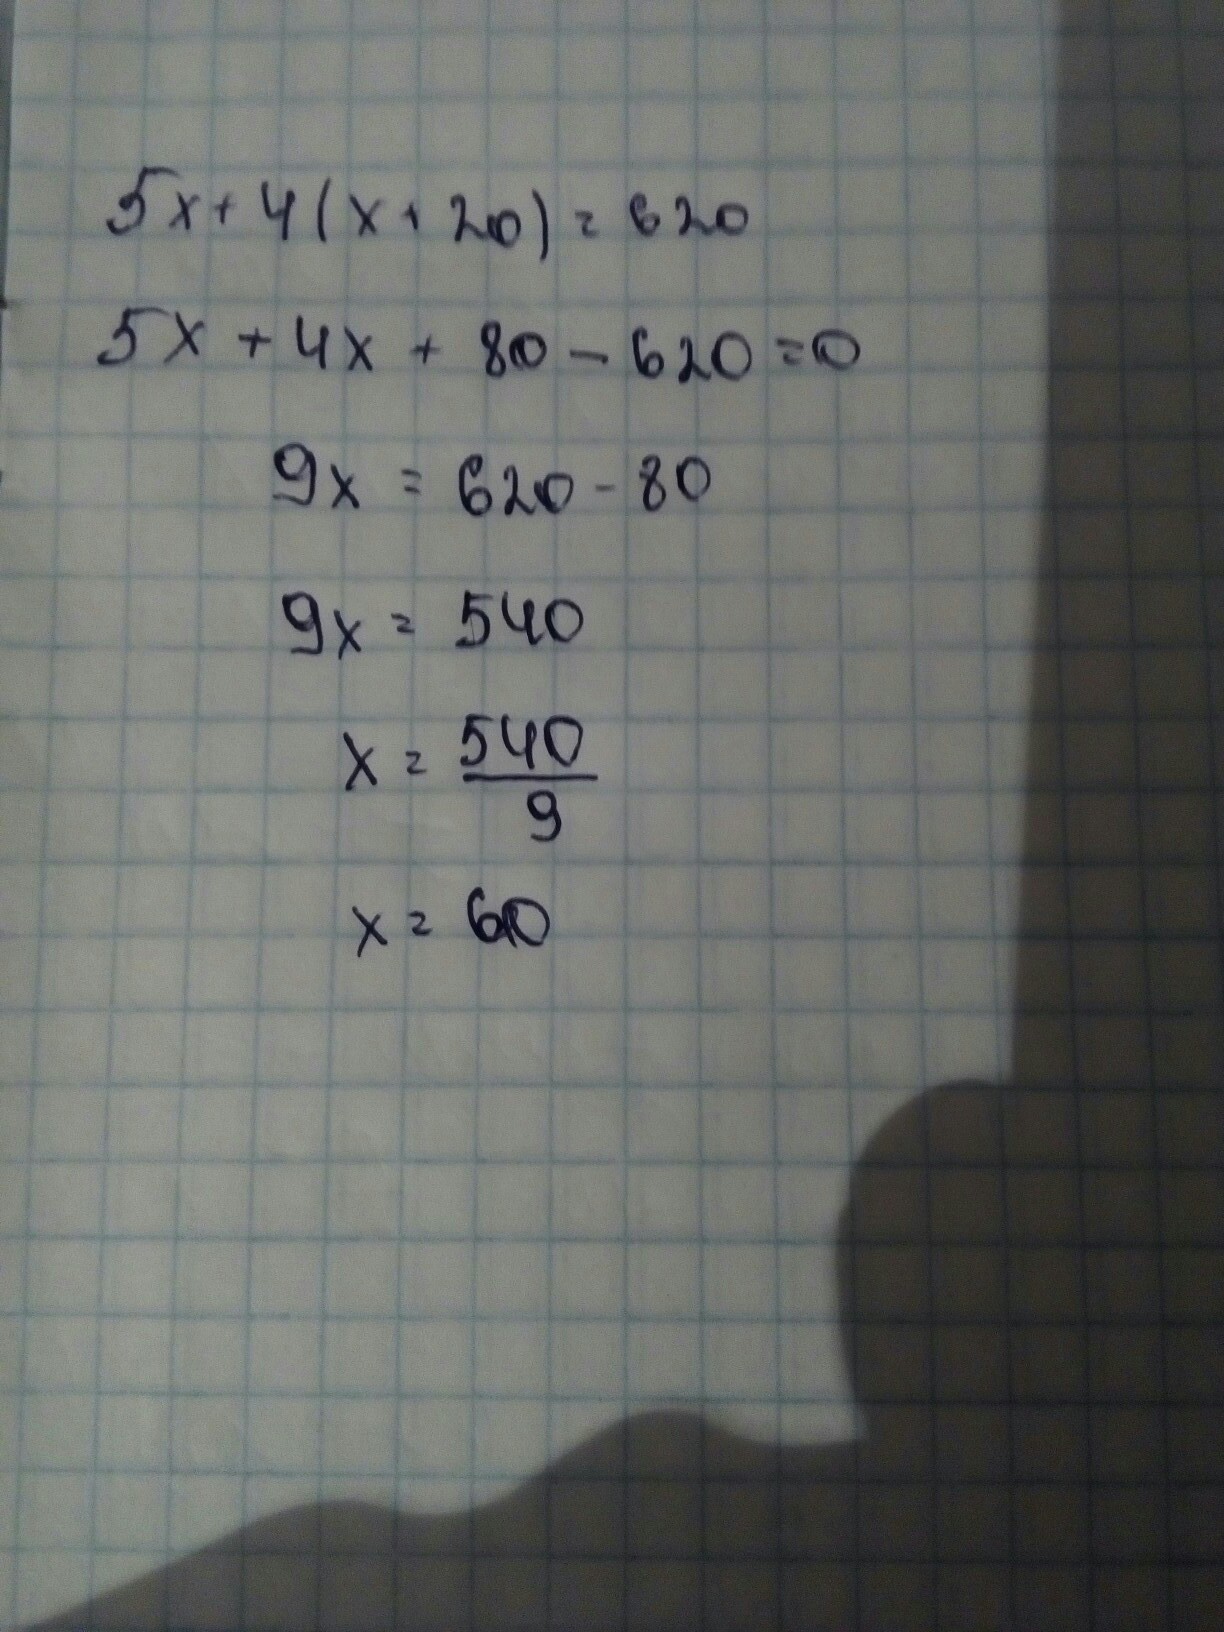 5x + 4(x + 20) = 620
5x + 4x + 80 - 620 = 0
9x = 620 - 80
9x = 540
x = 540/9
x = 60